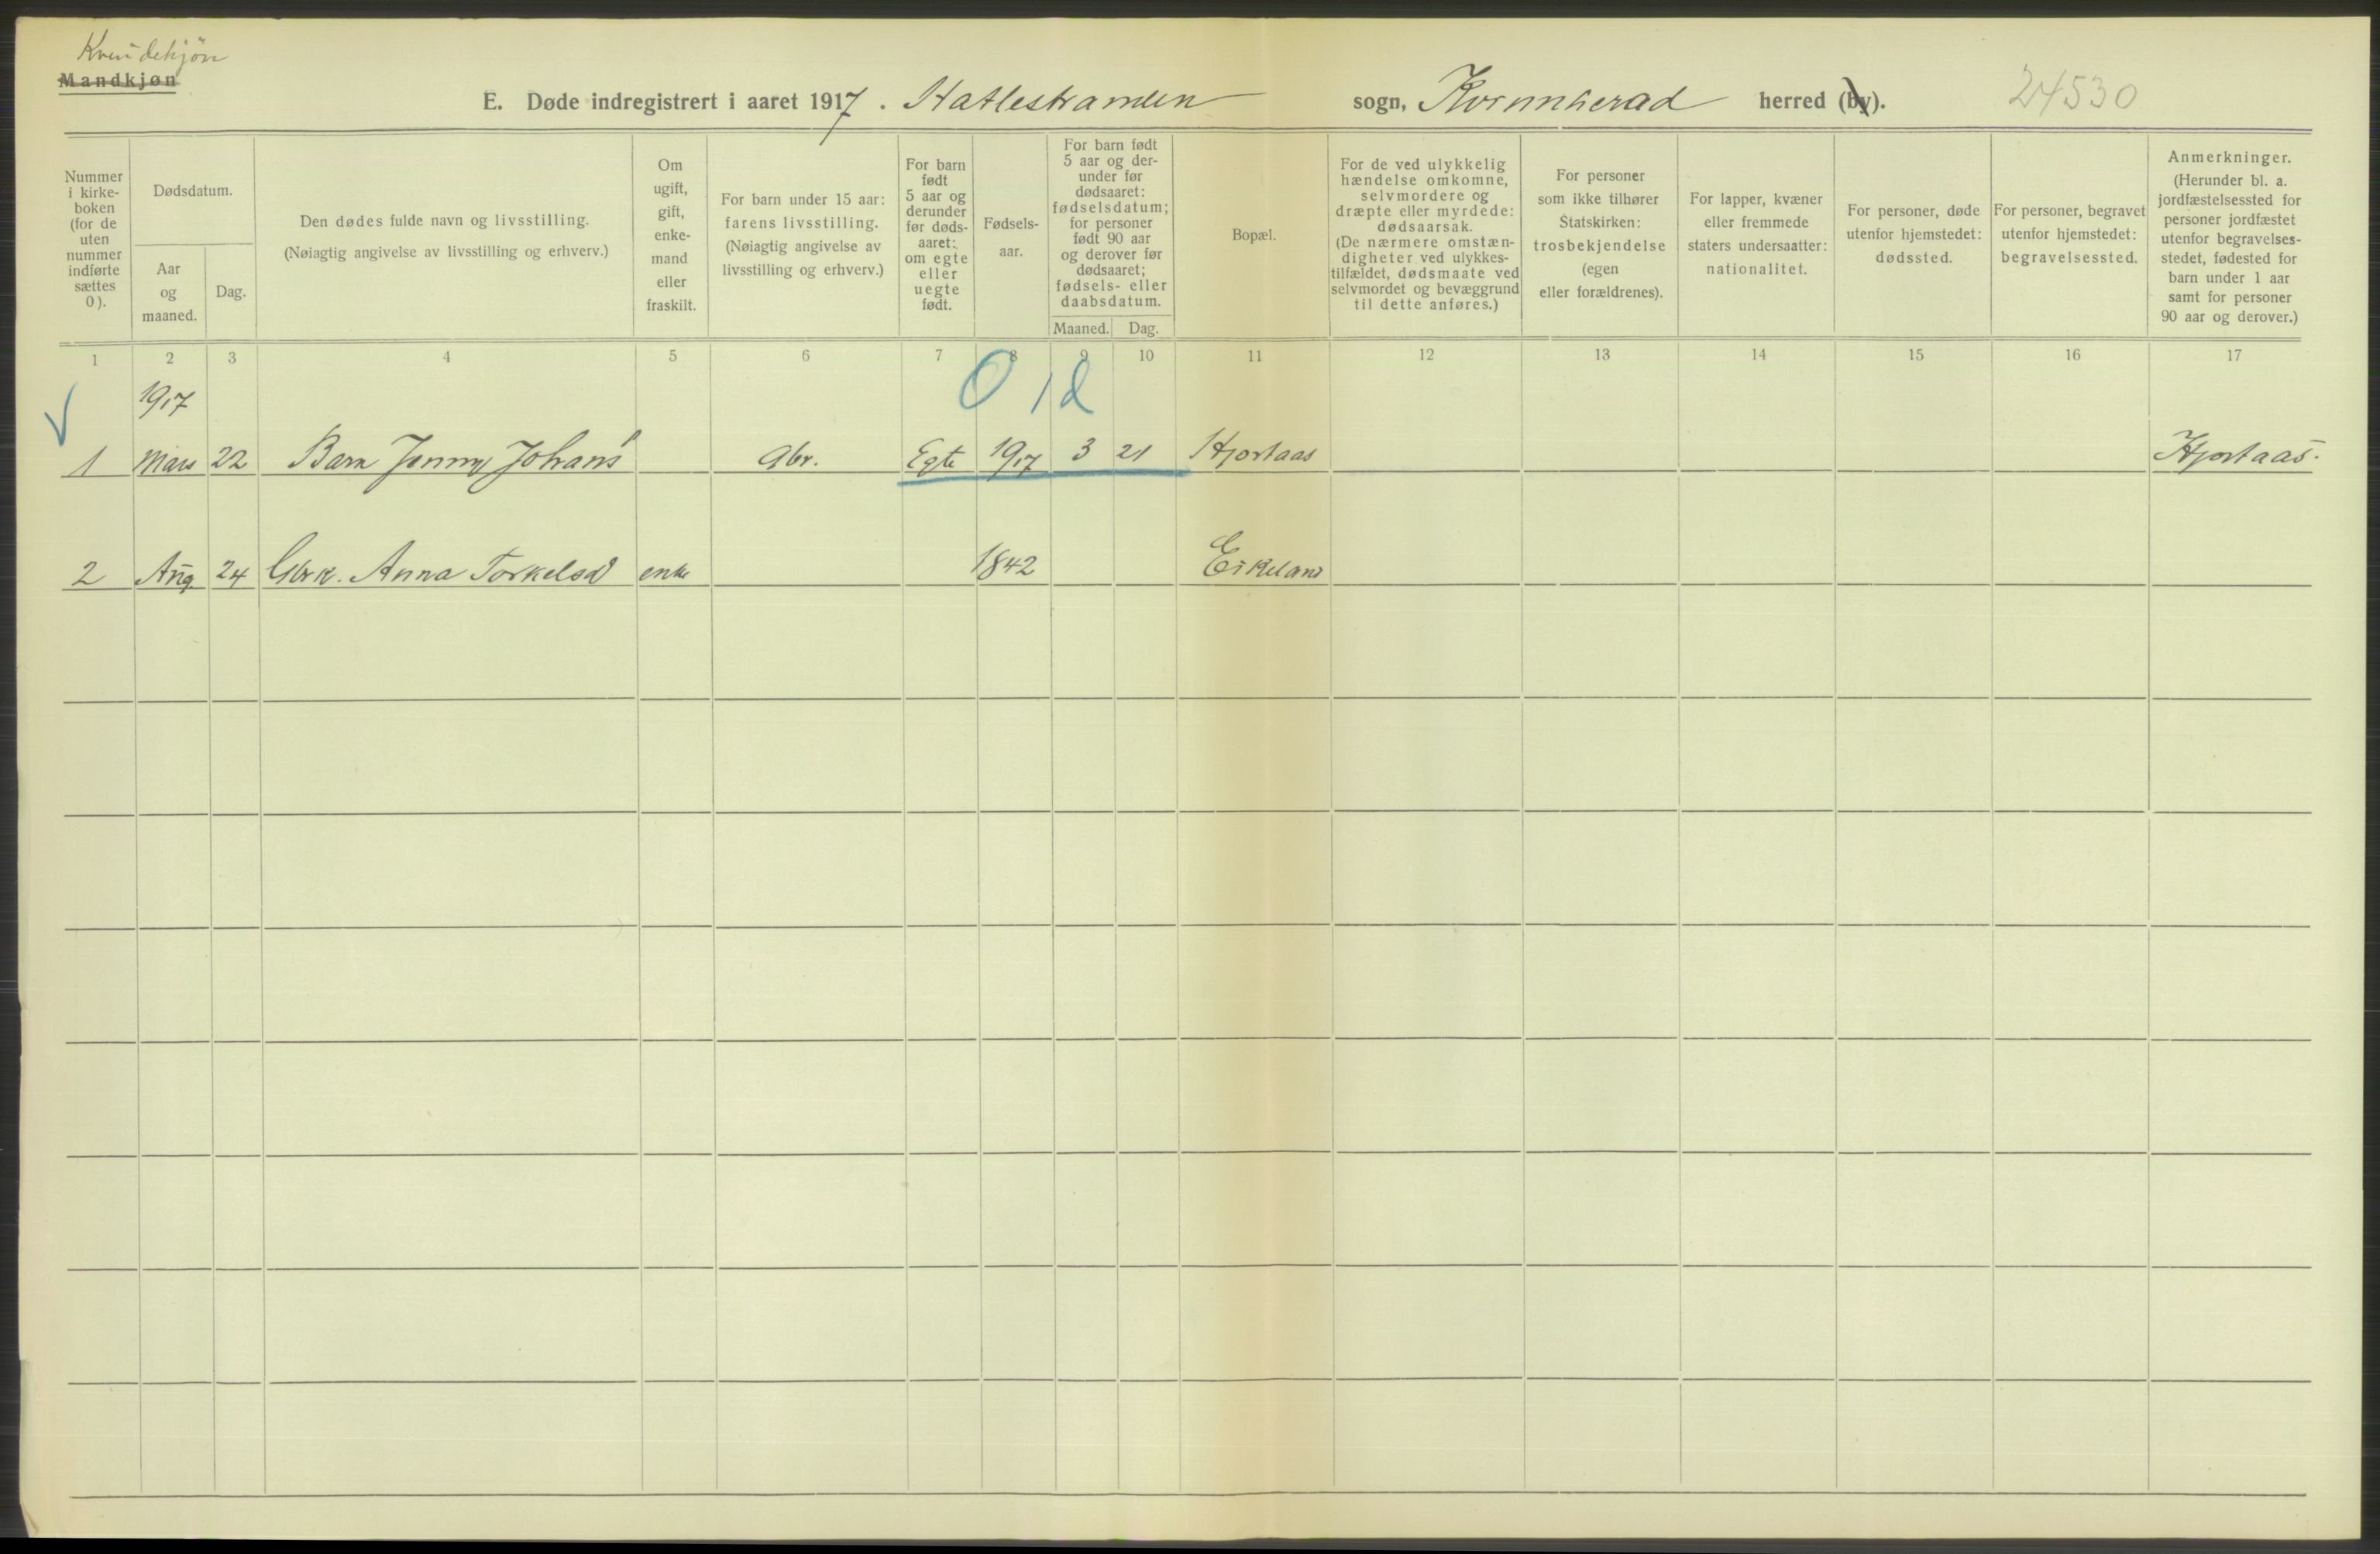 Kvindekjøn
Mandkjøn
E. Døde indregistrert i aaret 1917. Hatlestranden sogn, Kvinnherad herred (by). 24530
Nummer i kirkeboken (for de uten nummer indførte sættes 0).
Dødsdatum.
Aar og maaned.
Dag.
Den dødes fulde navn og livsstilling.
(Nøiagtig angivelse av livsstilling og erhverv.)
Om ugift, gift, enkemand eller fraskilt.
For barn under 15 aar: farens livsstilling. (Nøiagtig angivelse av livsstilling og erhverv.)
For barn født 5 aar og derunder før dødsaaret: om egte eller uegte født.
Fødselsaar.
For barn født 5 aar og derunder før dødsaaret: fødselsdatum; for personer født 90 aar og derover før dødsaaret; fødsels- eller daabsdatum.
Maaned. Dag.
Bopæl.
For de ved ulykkelig hændelse omkomne, selvmordere og dræpte eller myrdede: dødsaarsak. (De nærmere omstændigheter ved ulykkestilfældet, dødsmaate ved selvmordet og bevæggrund til dette anføres.)
For personer som ikke tilhører Statskirken: trosbekjendelse (egen eller forældrenes).
For lapper, kvæner eller fremmede staters undersaatter: nationalitet.
For personer, døde utenfor hjemstedet: dødssted.
For personer, begravet utenfor hjemstedet: begravelsessted.
Anmerkninger. (Herunder bl. a. jordfæstelsessted for personer jordfæstet utenfor begravelsesstedet, fødested for barn under 1 aar samt for personer 90 aar og derover.)
1 2 3 4 5 6 7 8 9 10 11 12 13 14 15 16 17
1917 0 1 d
1 Mars 22 Barn Jenny Johans Gbr. Egte 1917 3 21 Hjortaas Hjortaas.
2 Aug 24 Gbrk. Anna Torkelsd enke 1842 Eikeland